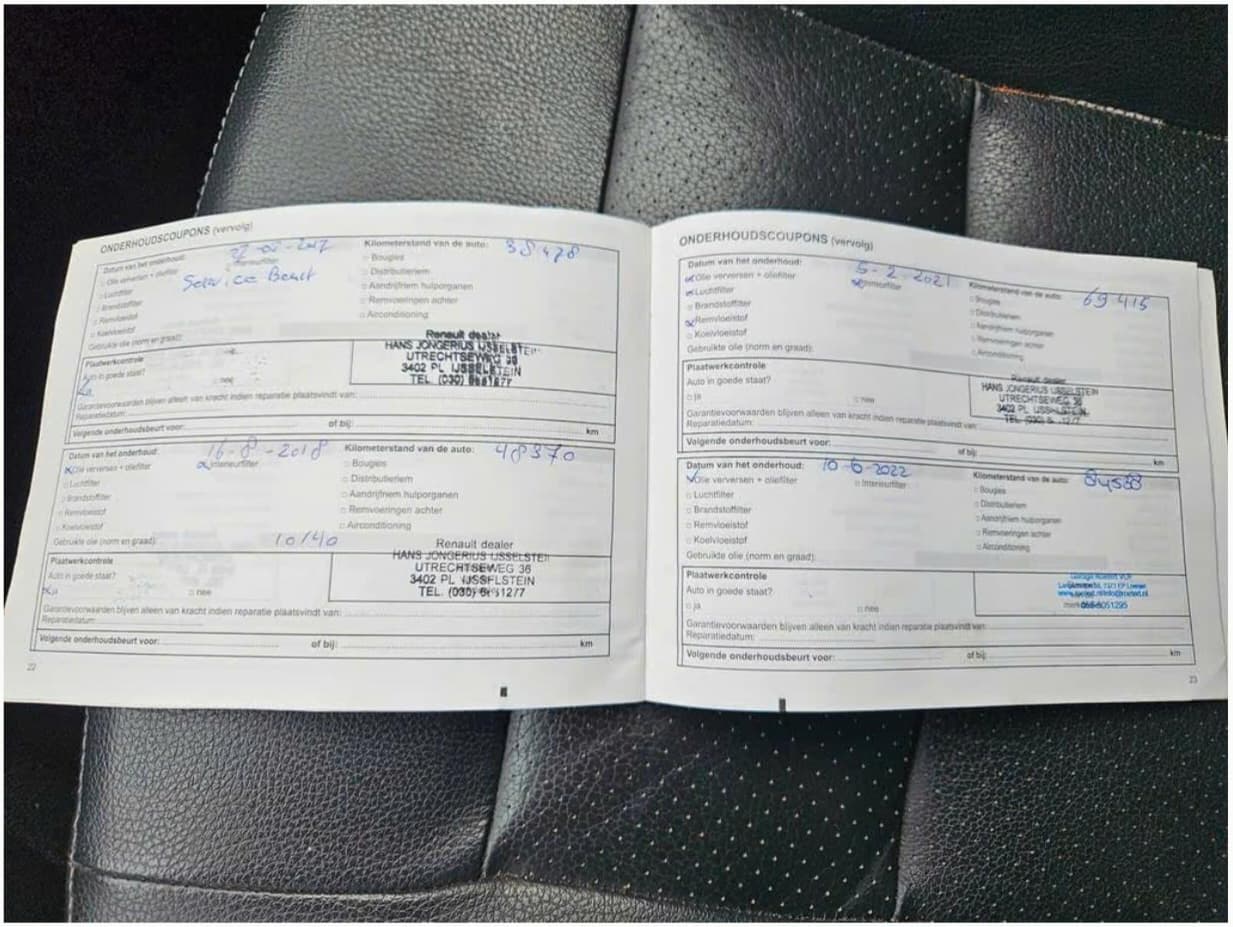 ONDERHOUDSCOUPONS (vervolg)
Datum van het onderhoud:
Kilometerstand van de auto: 38478
Olie verversen + oliefilter
Interieurfilter
Bougies
Luchtfilter
Distributieriem
Brandstoffilter
Aandrijfriem hulporganen
Remvloeistof
Remvoeringen achter
Koelvloeistof
Airconditioning
Gebruikte olie (norm en graad):
Plaatwerkcontrole
Auto in goede staat?
ja
nee
Renault dealer
HANS JONGERIUS IJSSELSTEIN
UTRECHTSEWEG 36
3402 PL IJSSELSTEIN
TEL. (030)
Garantievoorwaarden blijven alleen van kracht indien reparatie plaatsvindt van:
Reparatiedatum:
Volgende onderhoudsbeurt voor: of bij: km
Datum van het onderhoud: 16-8-2018 Kilometerstand van de auto: 48370
Olie verversen + oliefilter
Interieurfilter
Bougies
Luchtfilter
Distributieriem
Brandstoffilter
Aandrijfriem hulporganen
Remvloeistof
Remvoeringen achter
Koelvloeistof
Airconditioning
Gebruikte olie (norm en graad): 10/40
Plaatwerkcontrole
Auto in goede staat?
ja
nee
Renault dealer
HANS JONGERIUS IJSSELSTEIN
UTRECHTSEWEG 36
3402 PL IJSSELSTEIN
TEL. (030)
Garantievoorwaarden blijven alleen van kracht indien reparatie plaatsvindt van:
Reparatiedatum:
Volgende onderhoudsbeurt voor: of bij: km
22
ONDERHOUDSCOUPONS (vervolg)
Datum van het onderhoud: 5-2-2021 Kilometerstand van de auto: 69415
Olie verversen + oliefilter
Interieurfilter
Bougies
Luchtfilter
Distributieriem
Brandstoffilter
Aandrijfriem hulporganen
Remvloeistof
Remvoeringen achter
Koelvloeistof
Airconditioning
Gebruikte olie (norm en graad):
Plaatwerkcontrole
Auto in goede staat?
ja
nee
Renault dealer
HANS JONGERIUS IJSSELSTEIN
UTRECHTSEWEG 36
3402 PL IJSSELSTEIN
Garantievoorwaarden blijven alleen van kracht indien reparatie plaatsvindt van:
Reparatiedatum:
Volgende onderhoudsbeurt voor: of bij: km
Datum van het onderhoud: 10-6-2022 Kilometerstand van de auto:
Olie verversen + oliefilter
Interieurfilter
Bougies
Luchtfilter
Distributieriem
Brandstoffilter
Aandrijfriem hulporganen
Remvloeistof
Remvoeringen achter
Koelvloeistof
Airconditioning
Gebruikte olie (norm en graad):
Plaatwerkcontrole
Auto in goede staat?
ja
nee
Garantievoorwaarden blijven alleen van kracht indien reparatie plaatsvindt van:
Reparatiedatum:
Volgende onderhoudsbeurt voor: of bij: km
23